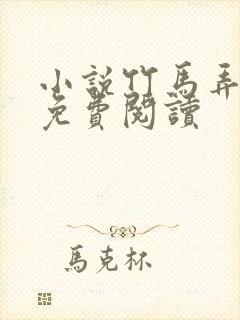 小說竹馬弄
免費閱讀
馬克杯